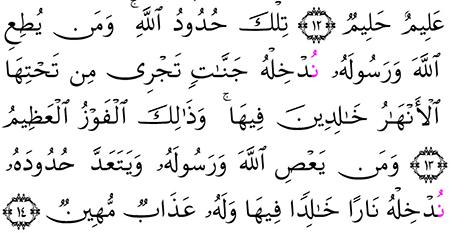 عَلِيمٌ حَلِيمٌ ١٢ تِلْكَ حُدُودُ ٱللَّهِۚ وَمَن يُطِعِ
ٱللَّهَ وَرَسُولَهُۥ نُدْخِلْهُ جَنَّٰتٖ تَجْرِى مِن تَحْتِهَا
ٱلْأَنْهَٰرُ خَٰلِدِينَ فِيهَاۚ وَذَٰلِكَ ٱلْفَوْزُ ٱلْعَظِيمُ
١٣ وَمَن يَعْصِ ٱللَّهَ وَرَسُولَهُۥ وَيَتَعَدَّ حُدُودَهُۥ
نُدْخِلْهُ نَارًا خَٰلِدٗا فِيهَا وَلَهُۥ عَذَابٞ مُّهِينٞ ١٤